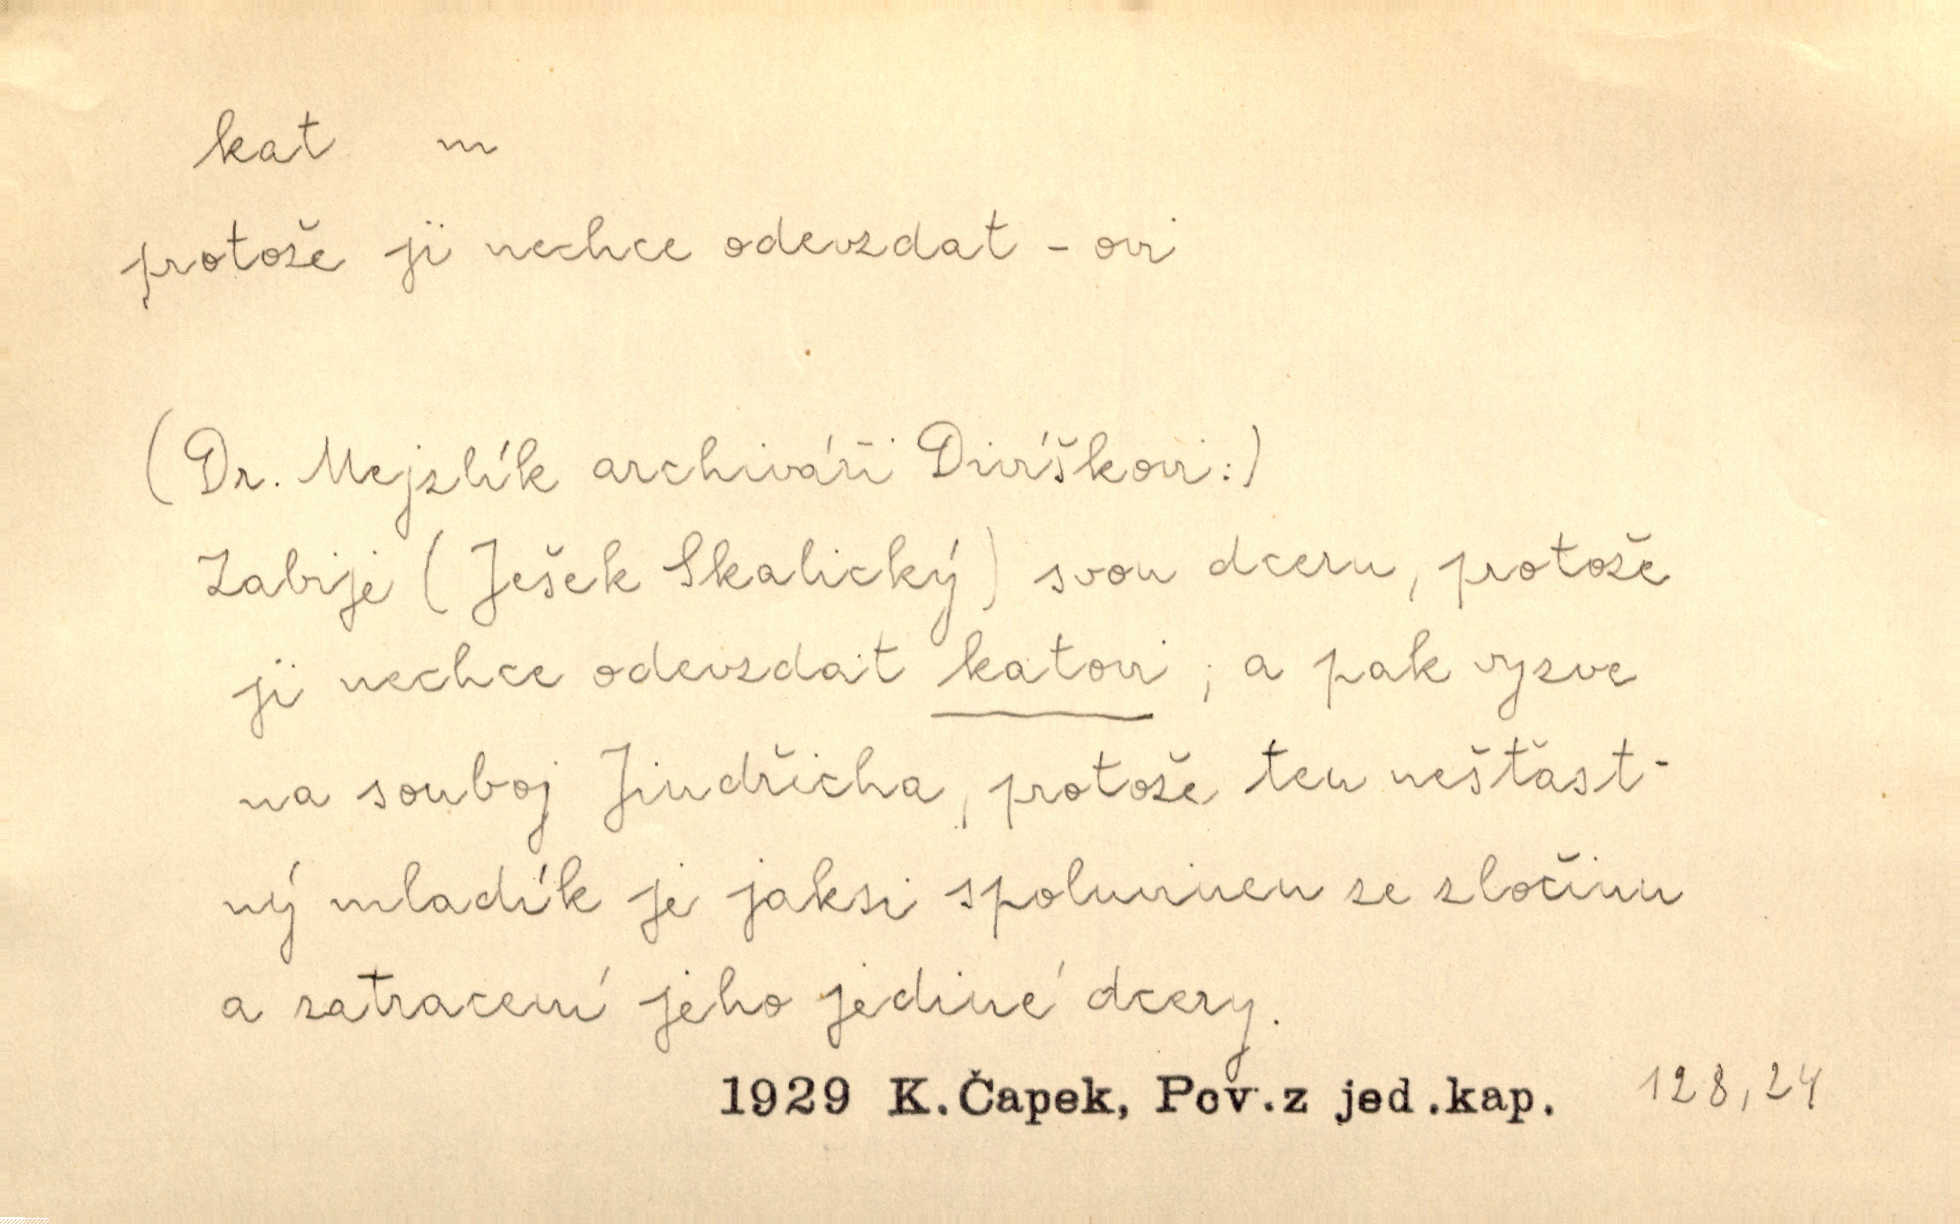 kat m
protože ji nechce odevzdat - ovi
(Dr. Mejzlík archiváři Divíškovi:)
Zabije (Ješek Skalický) svou dceru, protože
ji nechce odevzdat katovi; a pak vyzve
na souboj Jindřicha, protože ten nešťast-
ný mladík je jaksi spoluvinen se zločinu
a zatracení jeho jediné dcery.
1929 K.Čapek, Pov.z jed.kap. 128,24